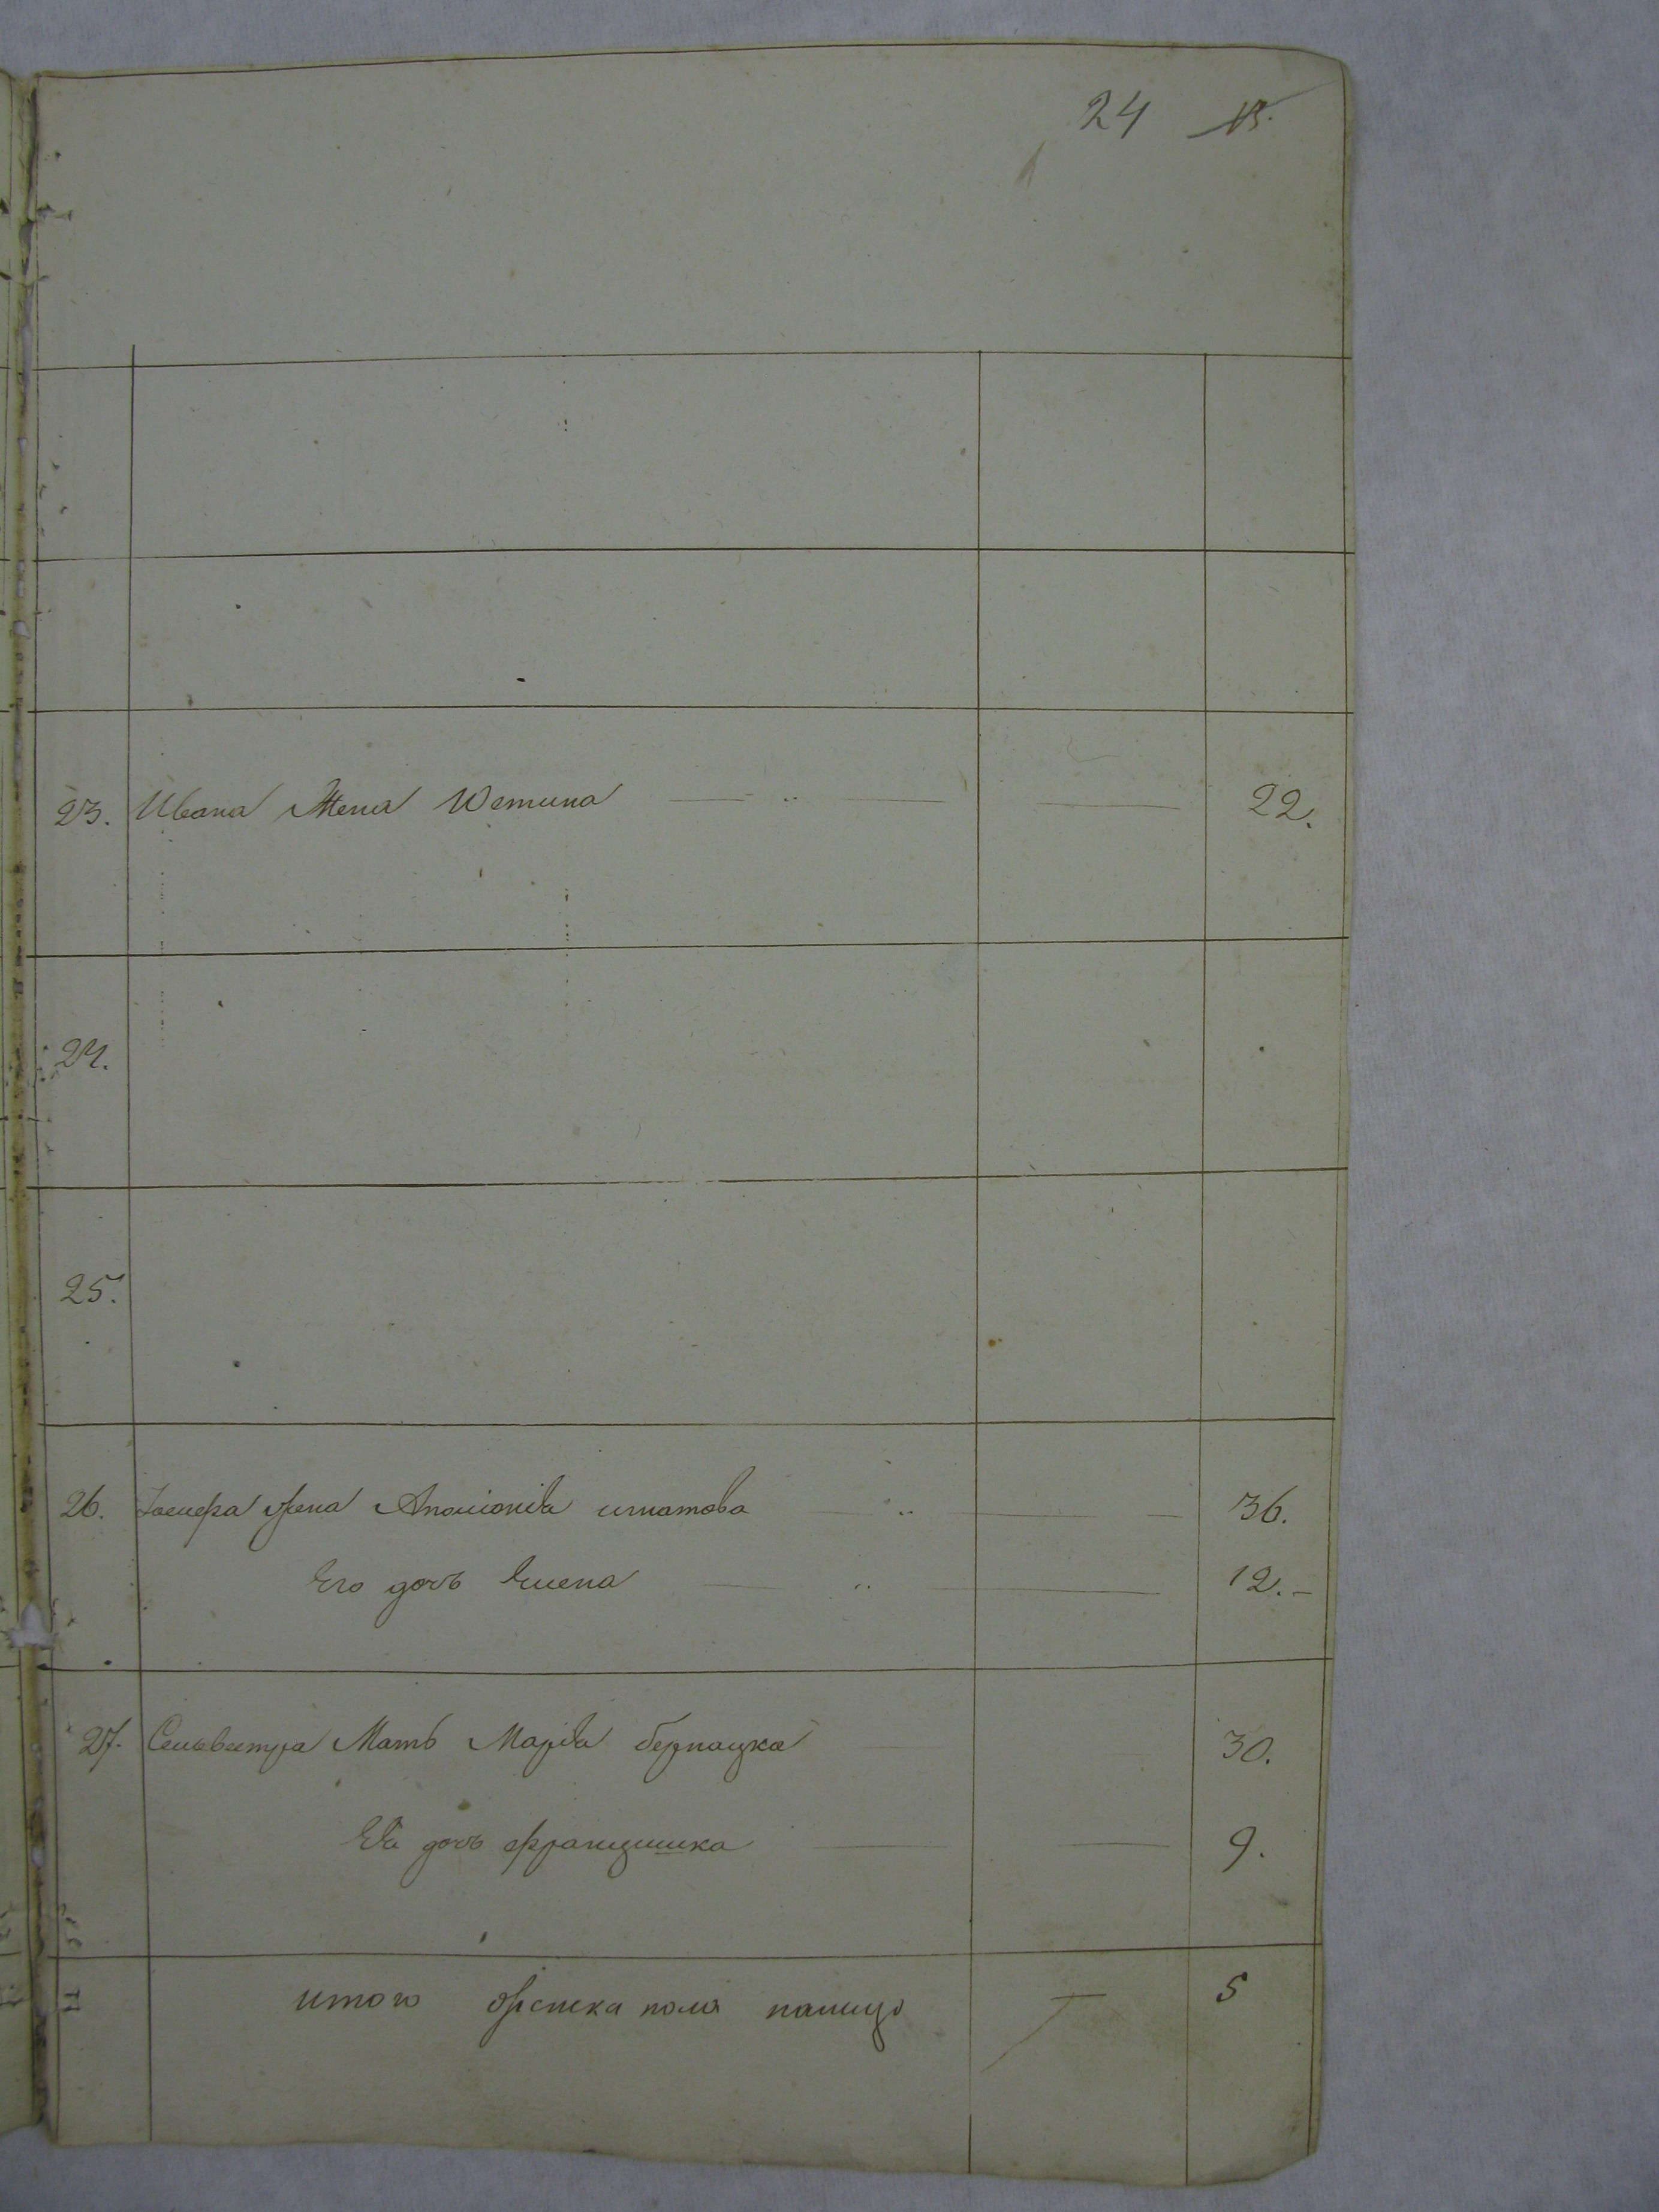 24 13.
23. Ивана Жена Юстина 22.
24.
25.
26. Іосифа жена Аполонія игнатова 36.
Его дочь Елена 12.
27. Сельвестра Мать Марія бернацка 30.
Ея дочь францишка 9.
итого женска пола налицо 5